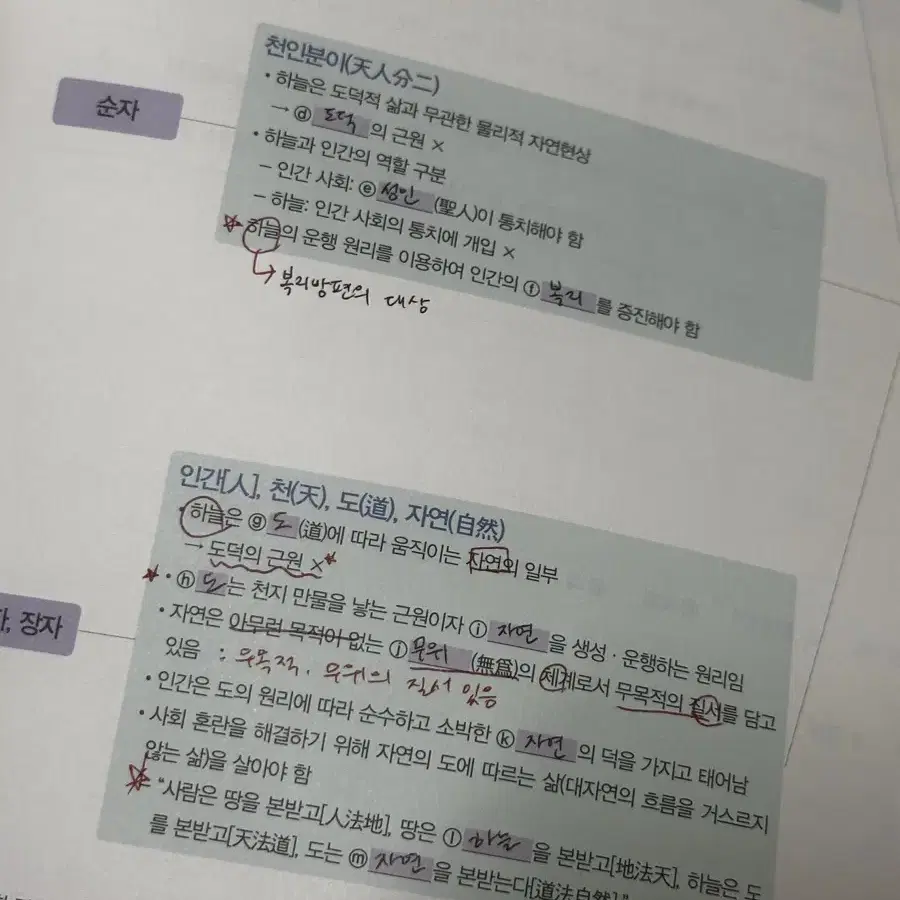 순자
천인분이(天人分二)
• 하늘은 도덕적 삶과 무관한 물리적 자연현상
→ ⓓ 도덕 의 근원 ×
• 하늘과 인간의 역할 구분
– 인간 사회: ⓔ 성인 (聖人)이 통치해야 함
– 하늘: 인간 사회의 통치에 개입 ×
• 하늘의 운행 원리를 이용하여 인간의 ⓕ 복리 를 증진해야 함
↳ 복리방편의 대상
자, 장자
인간[人], 천(天), 도(道), 자연(自然)
• 하늘은 ⓖ 도 (道)에 따라 움직이는 자연의 일부
→ 도덕의 근원 ×
• ⓗ 도 는 천지 만물을 낳는 근원이자 ⓘ 자연 을 생성·운행하는 원리임
• 자연은 아무런 목적이 없는 ⓙ 무위 (無爲)의 체계로서 무목적의 질서를 담고
있음 : 무목적, 무위의 질서 있음
• 인간은 도의 원리에 따라 순수하고 소박한 ⓚ 자연 의 덕을 가지고 태어남
• 사회 혼란을 해결하기 위해 자연의 도에 따르는 삶(대자연의 흐름을 거스르지
않는 삶)을 살아야 함
“사람은 땅을 본받고[人法地], 땅은 ⓛ 하늘 을 본받고[地法天], 하늘은 도
를 본받고[天法道], 도는 ⓜ 자연 을 본받는다[道法自然].”